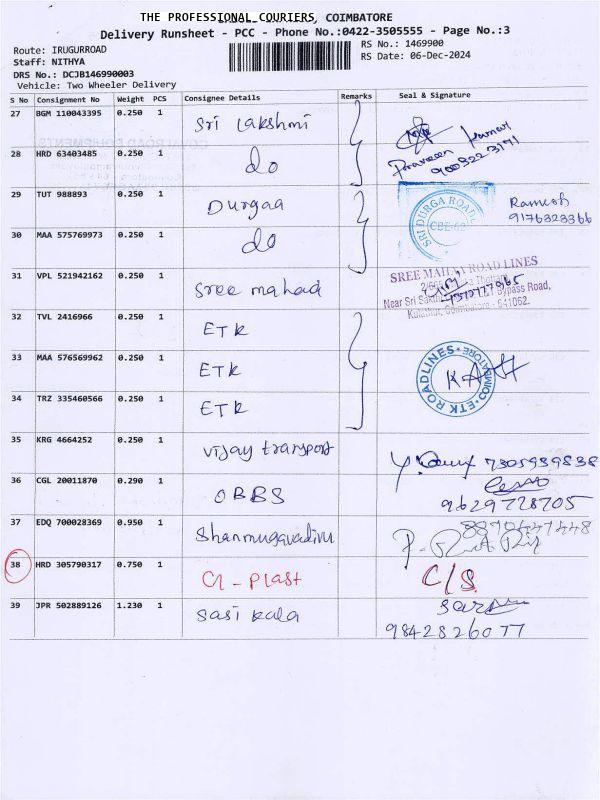 THE PROFESSIONAL COURIERS, COIMBATORE
Delivery Runsheet - PCC - Phone No.:0422-3505555 - Page No.:3
Route: IRUGURROAD
RS No.: 1469900
Staff: NITHYA
RS Date: 06-Dec-2024
DRS No.: DCJB146990003
Vehicle: Two Wheeler Delivery
S No Consignment No Weight PCS Consignee Details Remarks Seal & Signature
27 BGM 110043395 0.250 1 Sri Lakshmi
Praveen Kumar
28 HRD 63403485 0.250 1 do
29 TUT 988893 0.250 1 Durgaa
SRI DURGA ROAD
Ramesh
9176323366
30 MAA 575769973 0.250 1 do
31 VPL 521942162 0.250 1 Sree mahad
SREE ROAD LINES
Near Sri Bypass Road,
641062.
32 TVL 2416966 0.250 1 ETK
33 MAA 576569962 0.250 1 ETK
ETK ROADLINES COIMBATORE
34 TRZ 335460566 0.250 1 ETK
35 KRG 4664252 0.250 1 vijay transport
7305939838
36 CGL 20011870 0.290 1 OBBS
9629728705
37 EDQ 700028369 0.950 1 Shanmugavadivu
8870447448
38 HRD 305790317 0.750 1 C1 - Plast C/S
39 JPR 502889126 1.230 1 Sasi kala
9842826077